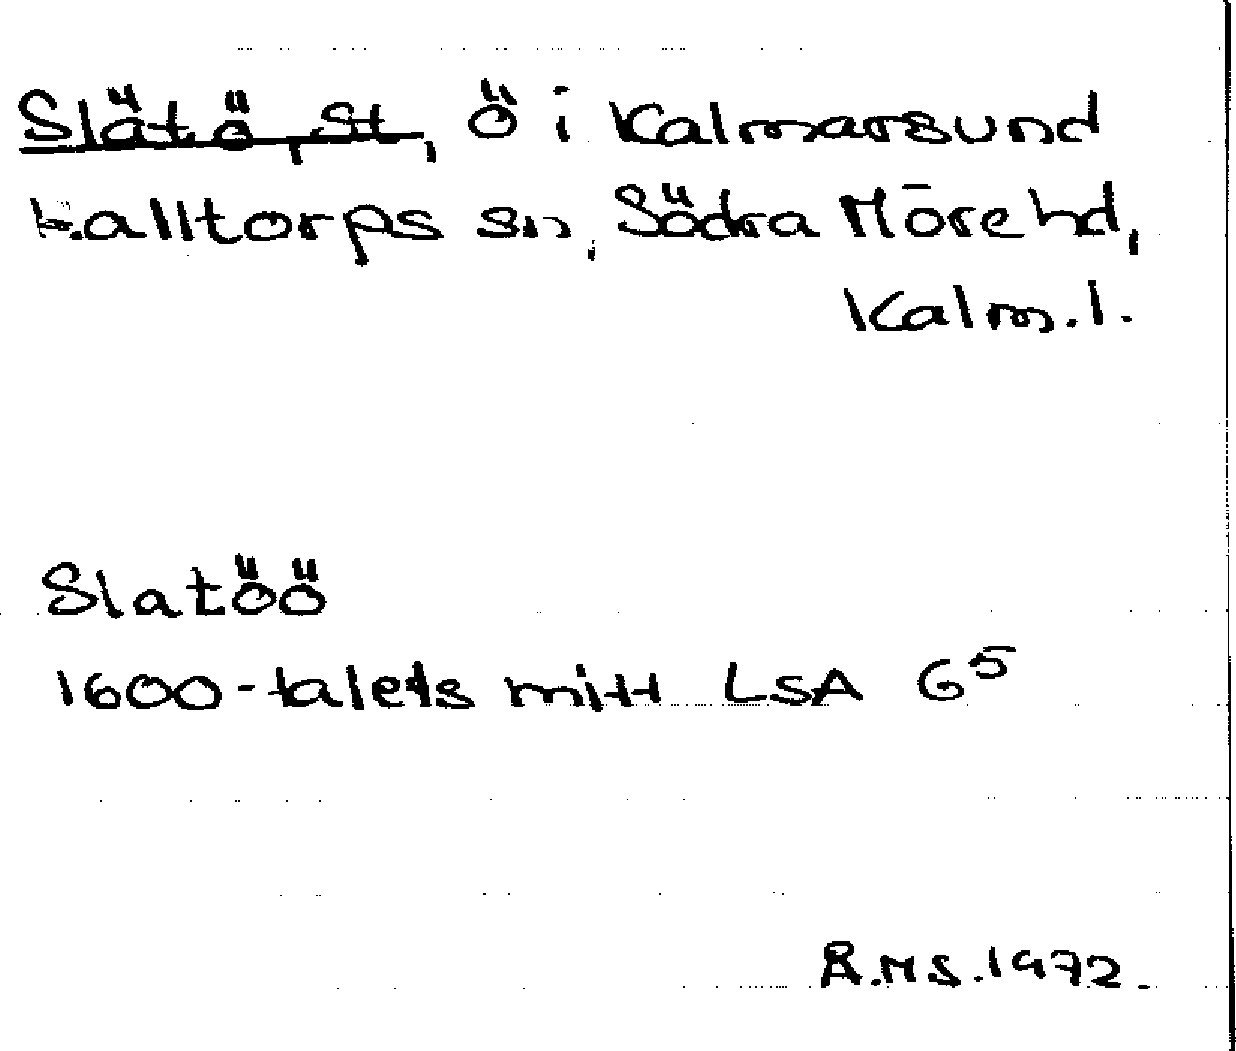 Slätö, St, Ö i Kalmarsund
Halltorps sn, Södra Möre hd,
Kalm.l.
Slatöö
1600-talets mitt LSA G⁵
R.MS.1972.